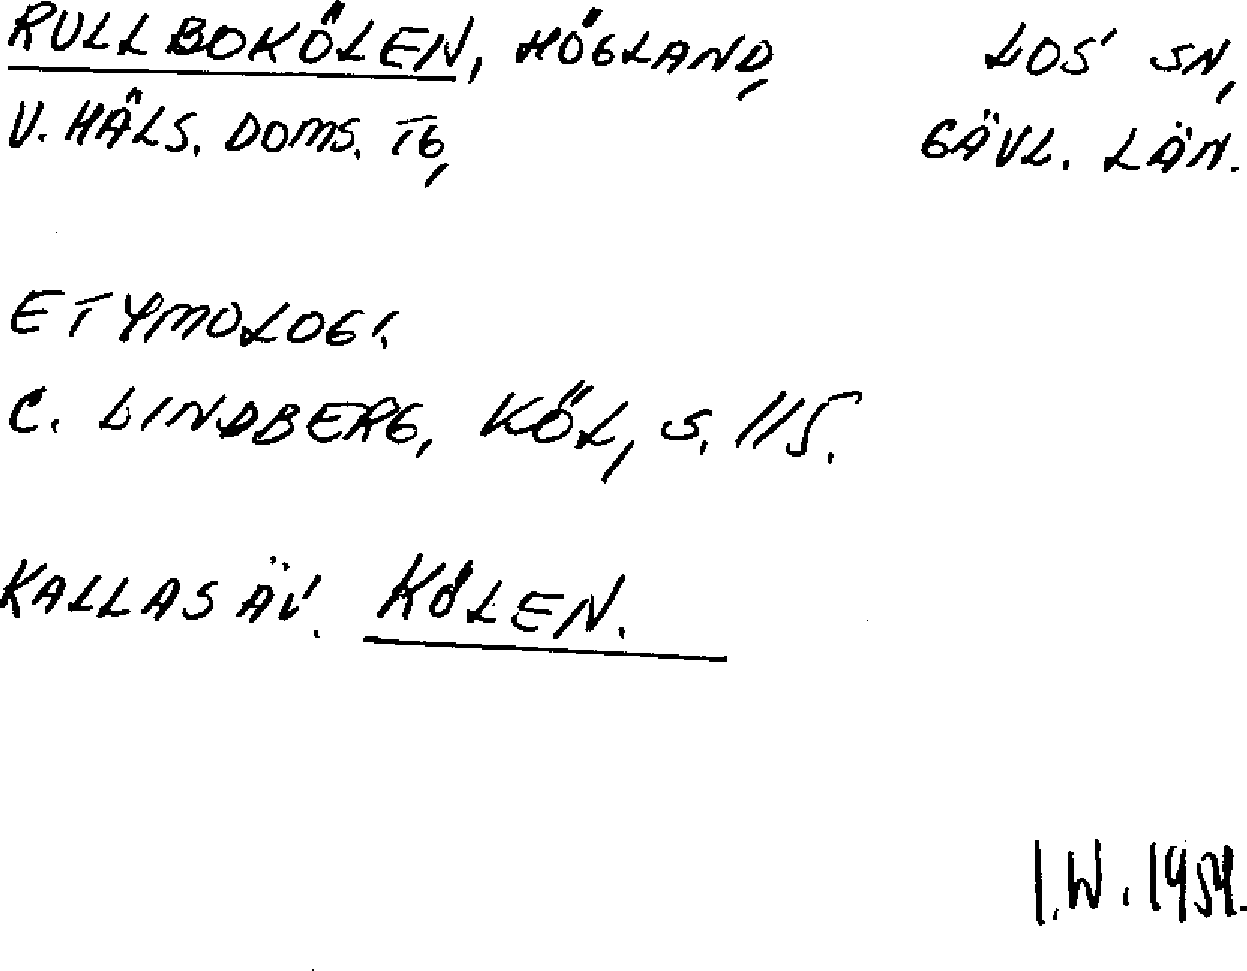 RULLBOKÖLEN, HÖGLAND, LOS' SN,
V. HÄLS. DOMS. TG, GÄVL. LÄN.
ETYMOLOGI.
C. LINDBERG, KÖL, S. 115.
KALLAS ÄV. KÖLEN.
I.W. 1954.